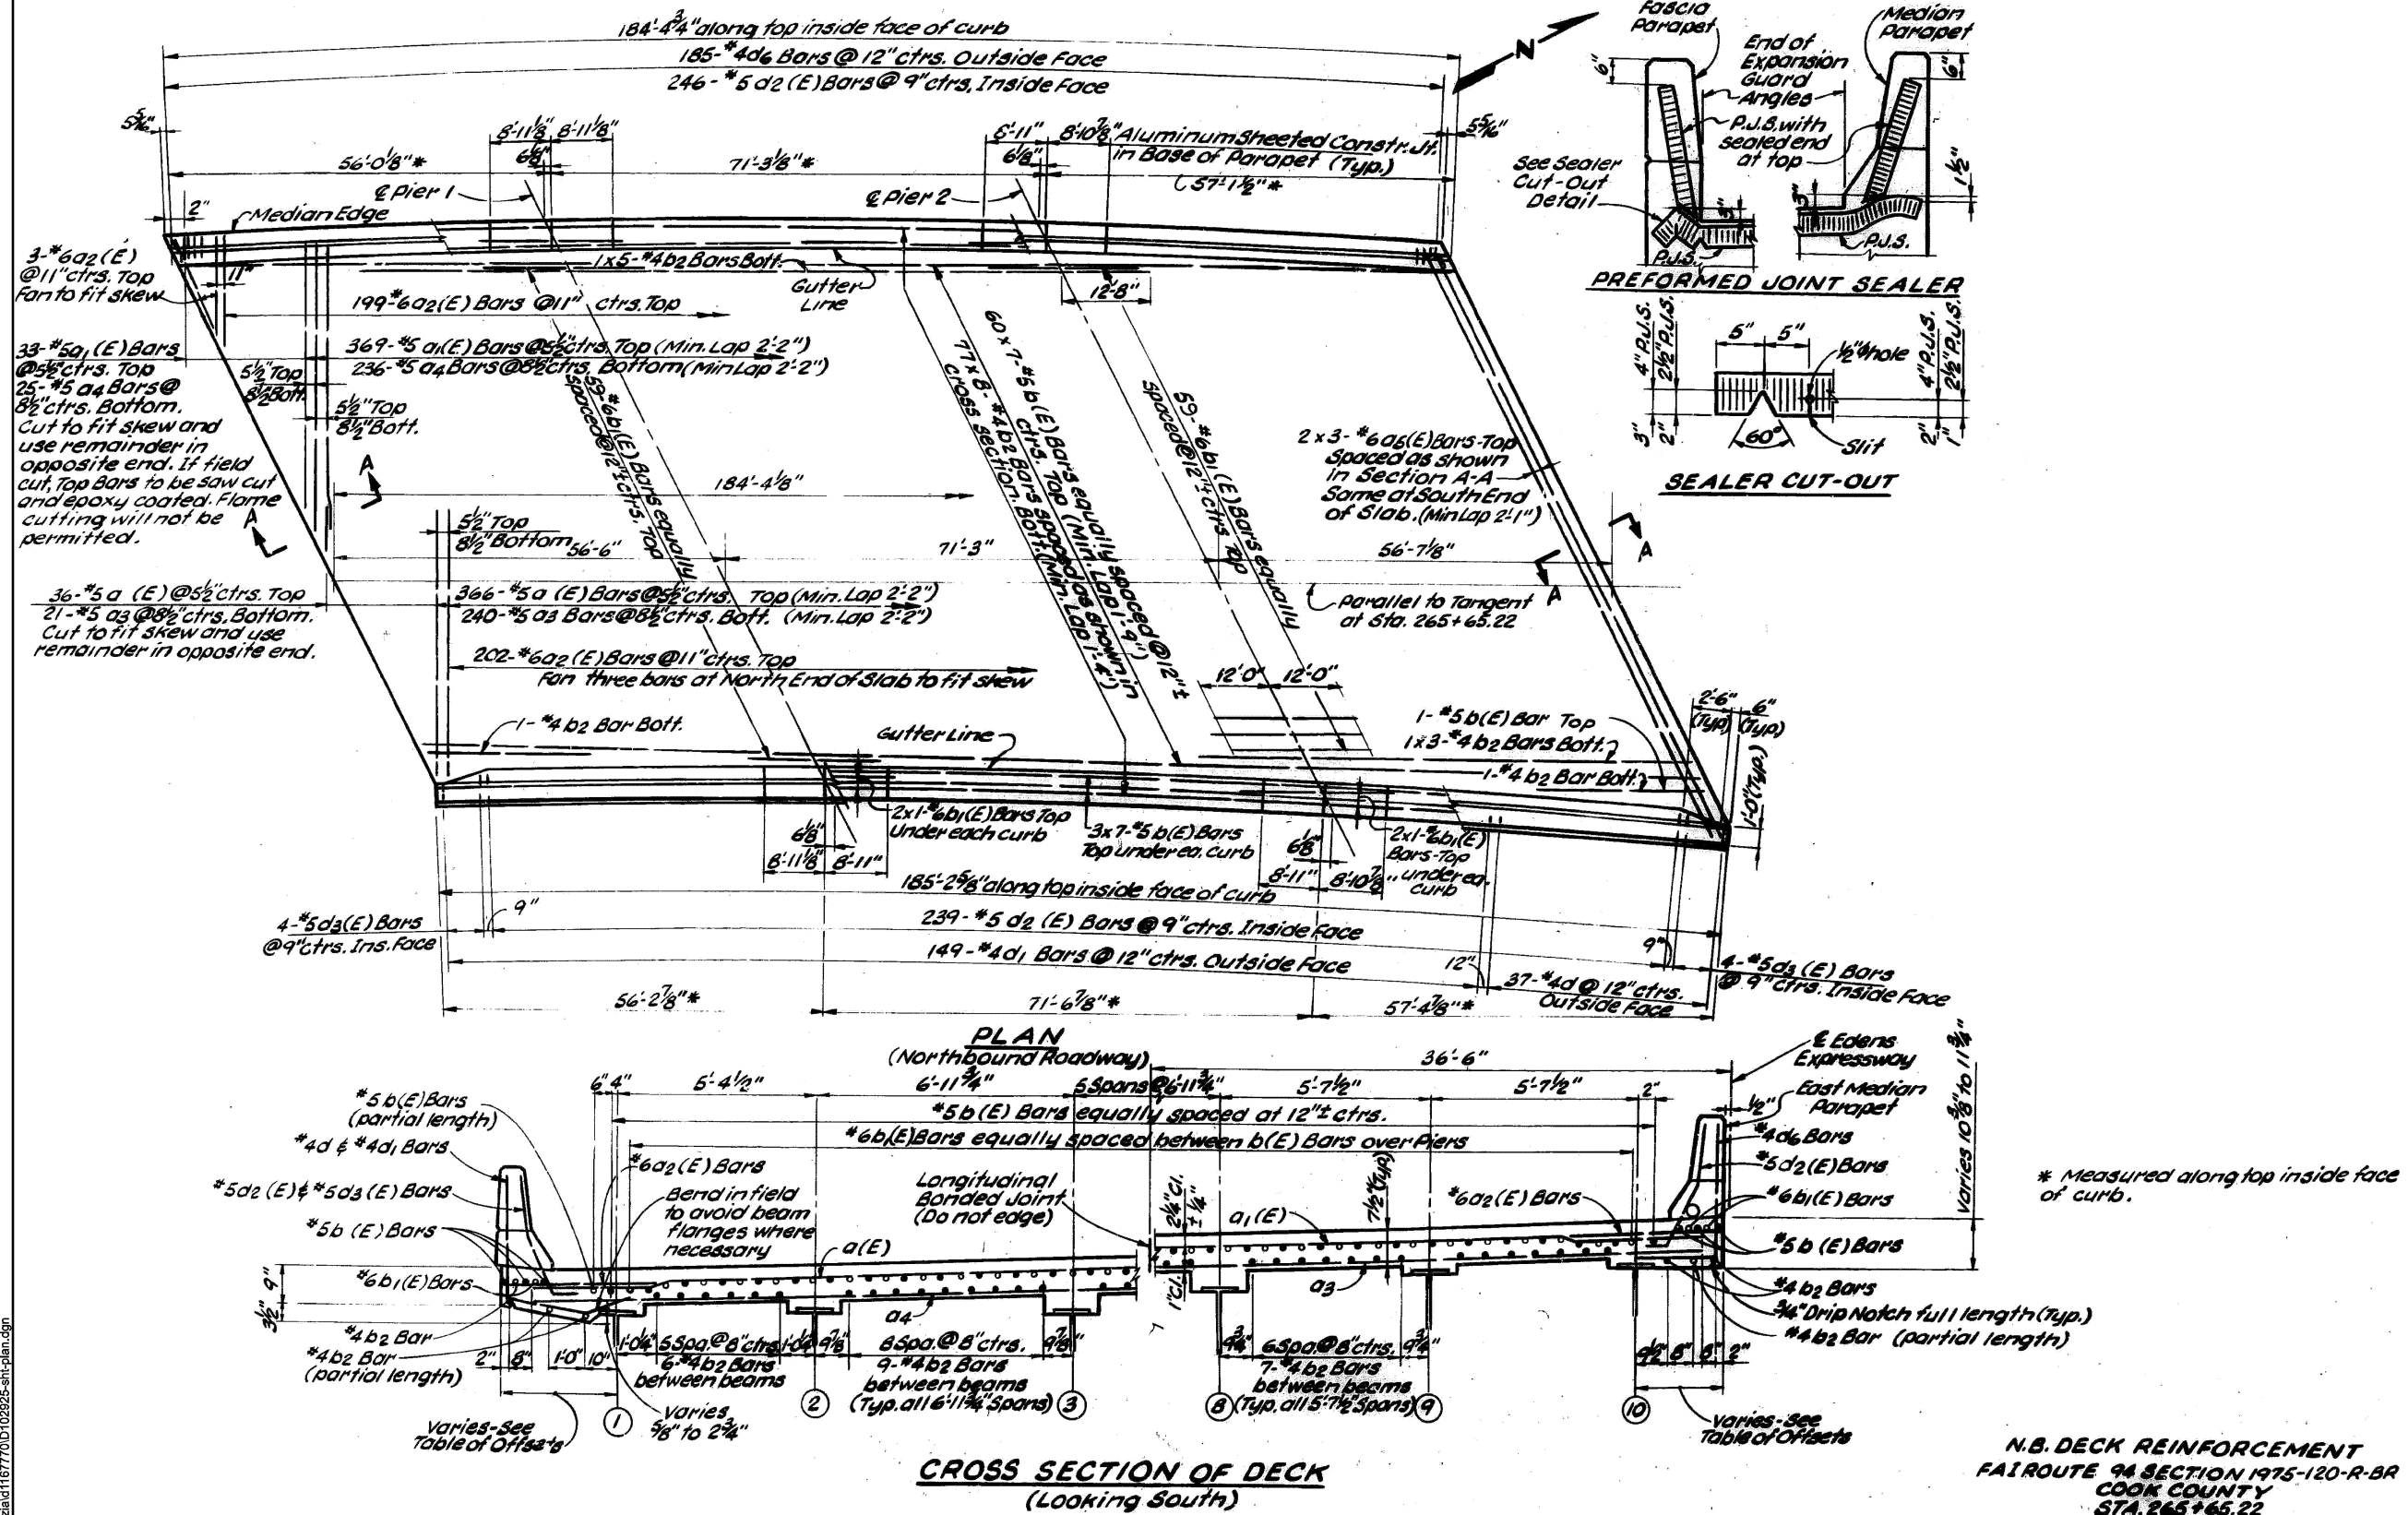 184'-4¾" along top inside face of curb
185-#4d6 Bars @ 12" ctrs. Outside Face
246-#5 d2 (E) Bars @ 9" ctrs, Inside Face
N
5⁵⁄₁₆"
8'-11⅛"
8'-11⅛"
6⅛"
8'-11"
8'-10⅞"
6⅛"
Aluminum Sheeted Constr. Jt.
in Base of Parapet (Typ.)
5⁵⁄₁₆"
56'-0⅛"*
71'-3⅛"*
57'-1½"*
℄ Pier 1
℄ Pier 2
2"
Median Edge
3-#6a2(E)
@11" ctrs. Top
Fan to fit skew
11"
1x5-#4b2 Bars Bott.
Gutter
Line
12'-8"
199-#6a2(E) Bars @11" ctrs. Top
33-#5a1(E) Bars
@5½" ctrs. Top
25-#5 a4 Bars @
8½" ctrs. Bottom.
Cut to fit skew and
use remainder in
opposite end. If field
cut, Top Bars to be saw cut
and epoxy coated. Flame
cutting will not be
permitted.
5½" Top
8½" Bott.
5½" Top
8½" Bott.
369-#5 a1(E) Bars @5½" ctrs. Top (Min. Lap 2'-2")
236-#5 a4 Bars @8½" ctrs. Bottom (Min Lap 2'-2")
59-#6b1(E) Bars equally
spaced @ 12"± ctrs. Top
60 x 7-#5b(E) Bars equally spaced @ 12"±
ctrs. Top (Min. Lap 1'-9")
77 x 8-#4b2 Bars spaced as shown in
cross section. Bott. (Min. Lap 1'-4")
59-#6b1(E) Bars equally
spaced @ 12"± ctrs Top
2 x 3-#6a6(E) Bars-Top
Spaced as shown
in Section A-A
Same at South End
of Slab. (Min Lap 2'-1")
A
A
184'-4⅛"
5½" Top
8½" Bottom
56'-6"
71'-3"
56'-7⅛"
A
A
Parallel to Tangent
at Sta. 265+65.22
36-#5 a (E) @5½" ctrs. Top
21-#5 a3 @8½" ctrs. Bottom.
Cut to fit skew and use
remainder in opposite end.
366-#5a (E) Bars @5½" ctrs. Top (Min. Lap 2'-2")
240-#5 a3 Bars @8½" ctrs. Bott. (Min. Lap 2'-2")
202-#6a2(E) Bars @11" ctrs. Top
Fan three bars at North End of Slab to fit skew
12'-0"
12'-0"
1-#4b2 Bar Bott.
Gutter Line
1-#5b(E) Bar Top
1x3-#4b2 Bars Bott.
1-#4b2 Bar Bott.
2'-6"
(Typ)
6"
(Typ)
1'-0"(Typ.)
6⅛"
8'-11⅛"
8'-11"
2x1-#6b1(E) Bars Top
Under each curb
3x7-#5b(E) Bars
Top under ea. curb
6⅛"
8'-11"
8'-10⅞"
2x1-#6b1(E)
Bars-Top
under ea.
curb
185'-2⅝" along top inside face of curb
4-#5d3(E) Bars
@9" ctrs. Ins. Face
9"
239-#5 d2 (E) Bars @ 9" ctrs. Inside Face
149-#4d1 Bars @ 12" ctrs. Outside Face
12"
37-#4d @ 12" ctrs.
Outside Face
9"
4-#5d3(E) Bars
@ 9" ctrs. Inside Face
56'-2⅞"*
71'-6⅞"*
57'-4⅞"*
PLAN
(Northbound Roadway)
Fascia
Parapet
Median
Parapet
6"
End of
Expansion
Guard
Angles
P.J.S. with
sealed end
at top
6"
1½"
See Sealer
Cut-Out
Detail
3"
3"
P.J.S.
P.J.S.
PREFORMED JOINT SEALER
4" P.J.S.
2½" P.J.S.
5"
5"
½"ϕ hole
4" P.J.S.
2½" P.J.S.
3"
2"
60°
Slit
2"
1"
SEALER CUT-OUT
36'-6"
℄ Edens
Expressway
6"
4"
5'-4½"
6'-11¾"
5 Spans @ 6'-11¾"
5'-7½"
5'-7½"
2"
½"
East Median
Parapet
Varies 10⅜" to 11¾"
#5b(E) Bars
(partial length)
#5b(E) Bars equally spaced at 12"± ctrs.
#6b(E) Bars equally spaced between b(E) Bars over Piers
#4d & #4d1 Bars
#5d2(E) & #5d3(E) Bars
#5b (E) Bars
#6b1(E) Bars
9"
3½"
#6a2(E) Bars
Bend in field
to avoid beam
flanges where
necessary
a(E)
Longitudinal
Bonded Joint
(Do not edge)
2¼" Cl.
± ¼"
1" Cl.
a1(E)
7½"(Typ)
#6a2(E) Bars
#4d6 Bars
#5d2(E) Bars
#6b1(E) Bars
#5b(E) Bars
#4b2 Bars
¾" Drip Notch full length (Typ.)
#4b2 Bar (partial length)
a4
a3
#4b2 Bar
#4b2 Bar
(partial length)
2"
8"
1'-0"
10"
1'-0¼"
5 Spa. @ 8" ctrs.
1'-0¼"
6-#4b2 Bars
between beams
9⅞"
8 Spa. @ 8" ctrs.
9⅞"
9-#4b2 Bars
between beams
(Typ. all 6'-11¾" Spans)
9¾"
6 Spa. @ 8" ctrs.
9¾"
7-#4b2 Bars
between beams
(Typ. all 5'-7½" Spans)
8"
8"
2"
1
2
3
8
9
10
Varies-See
Table of Offsets
Varies
⅝" to 2¾"
Varies-See
Table of Offsets
CROSS SECTION OF DECK
(Looking South)
* Measured along top inside face
of curb.
N.B. DECK REINFORCEMENT
FAI ROUTE 94 SECTION 1975-120-R-BR
COOK COUNTY
STA. 265+65.22
zia\d1167770\D102925-sht-plan.dgn